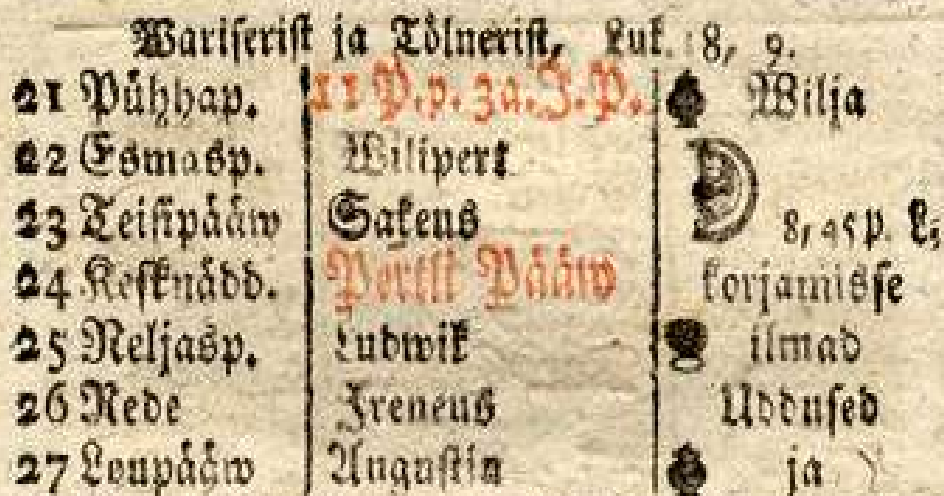 Wariserist ja Tölnerist, Luk. 18, 9.
21 Pühhap. 11 P. p. 3a. J. P. Wilja
22 Esmasp. Wilipert
23 Teisipääw Sakeus 8, 45 p. L;
24 Kesknädd. Pertli Pääw korjamisse
25 Neljasp. Ludwik ilmad
26 Rede Ireneus Uddused
27 Loupääw Augustin ja